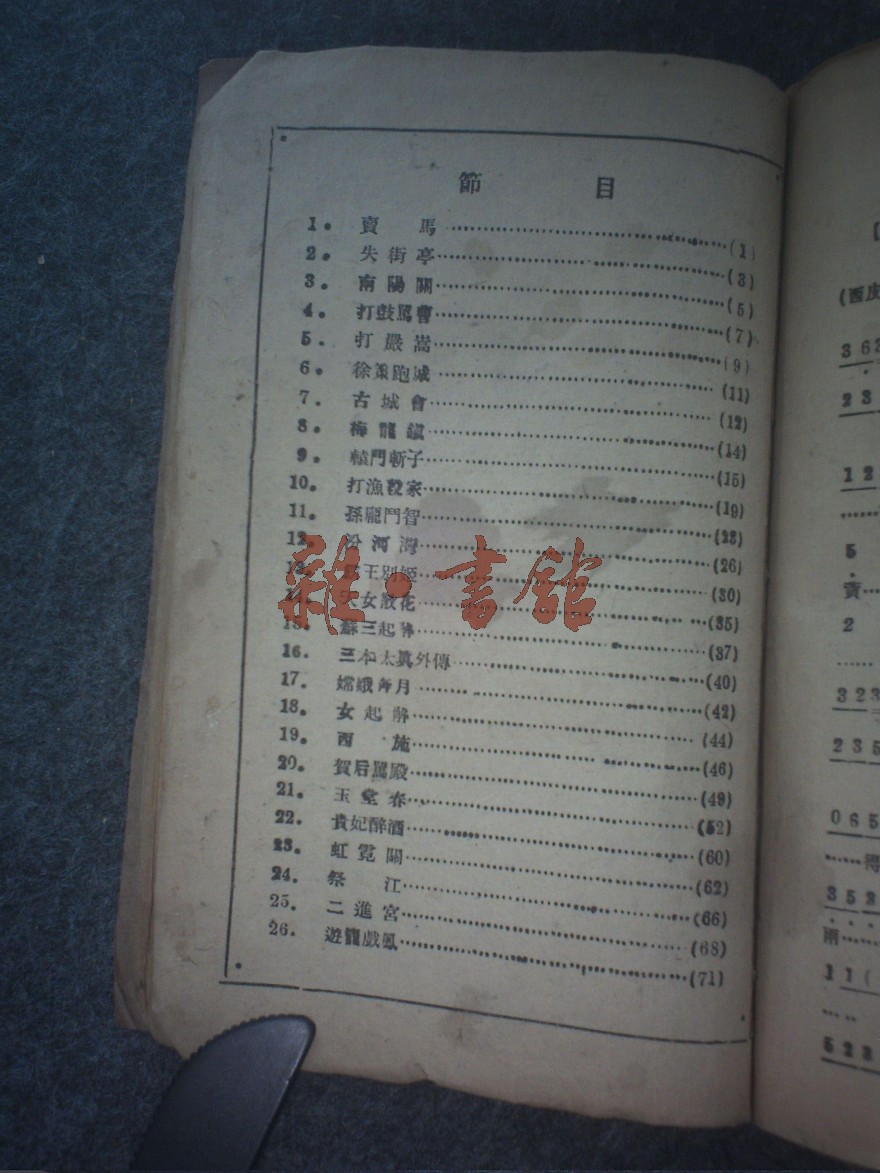 節 目
1. 賣 馬 (1)
2. 失街亭 (3)
3. 南陽關 (5)
4. 打鼓罵曹 (7)
5. 打嚴嵩 (9)
6. 徐策跑城 (11)
7. 古城會 (12)
8. 梅龍鎮 (14)
9. 轅門斬子 (15)
10. 打漁殺家 (19)
11. 孫龐鬥智 (23)
12. 汾河灣 (26)
13. 王別姬 (30)
14. 天女散花 (35)
15. 蘇三起解 (37)
16. 三本太真外傳 (40)
17. 嫦娥奔月 (42)
18. 女起解 (44)
19. 西 施 (46)
20. 賀后罵殿 (49)
21. 玉堂春 (52)
22. 貴妃醉酒 (60)
23. 虹霓關 (62)
24. 祭 江 (66)
25. 二進宮 (68)
26. 遊龍戲鳳 (71)
雜·書館
(西皮
3 6 3
2 3
1 2
5
賣
2
3 2 3
2 3 5
0 6 5
得
3 5 2
兩
1 1 (
5 2 3